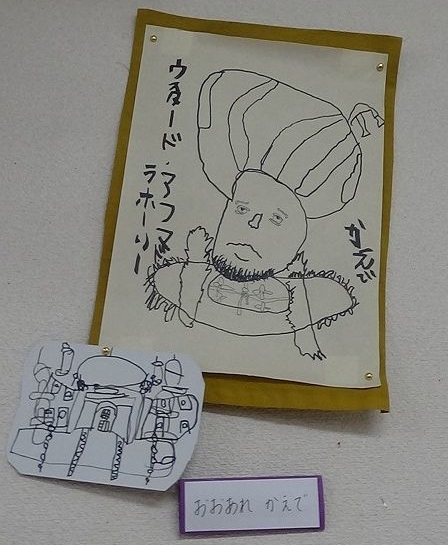 ウスタード・アフマド
ラホーリー
かえで
おおあれ かえで